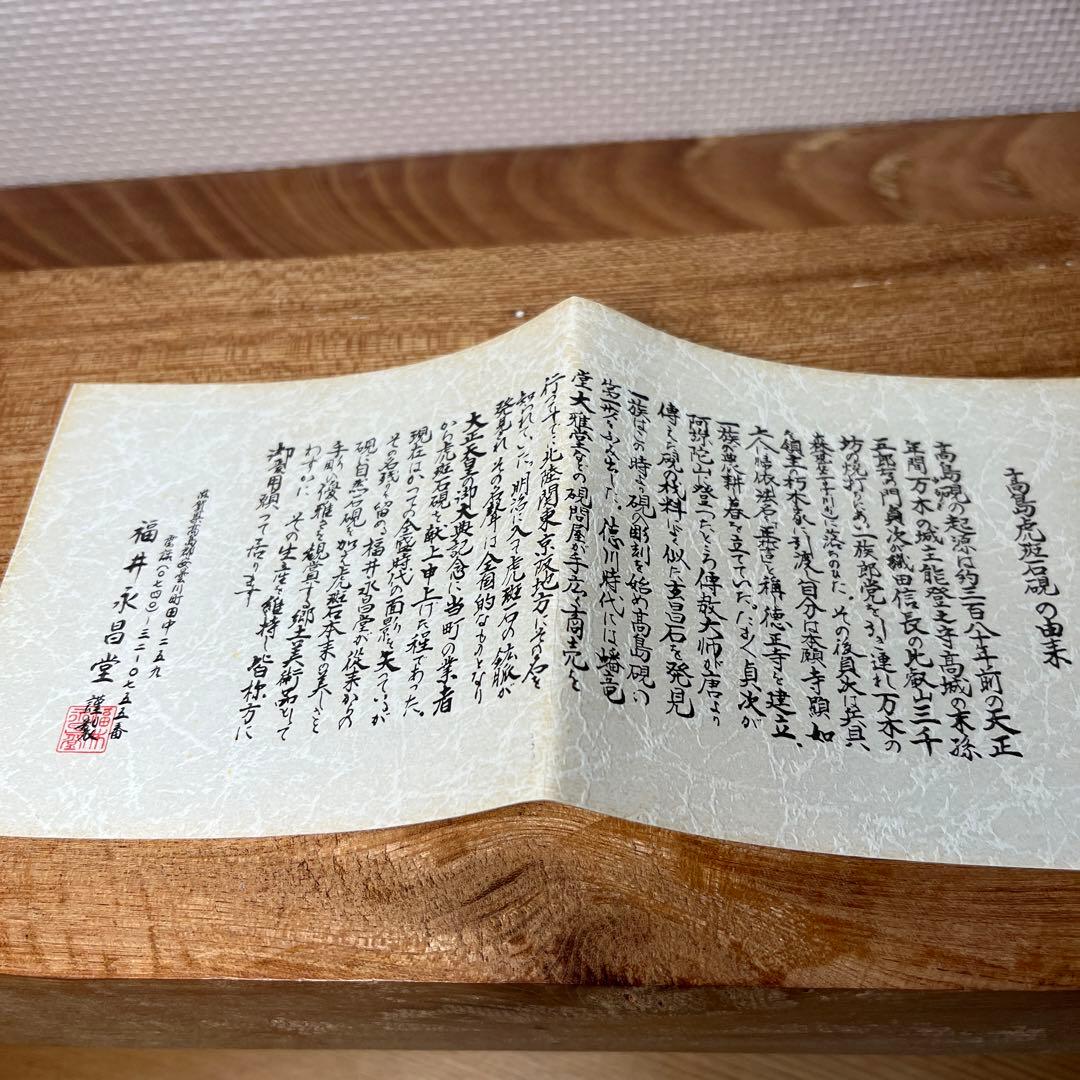 高島虎斑石硯の由来
高島硯の起源は約三百八十年前の天正
年間万木の城主能登之守高城の末孫
五郎左ヱ門貞次が織田信長の比叡山三千
坊焼打にあい一族郎党を引き連れ万木の
に落ちのびた。その後貞次は兵具
を領主朽木公に引き渡し自分は本願寺顕如
上人に帰依法名を と称し徳正寺を建立、
一族は農耕で春を立てていた。たまたま貞次が
阿弥陀山に登ったところ傳教大師が唐より
傳えた硯の材料によく似た玄昌石を発見
一族はこの時より硯の彫刻を始め高島硯の
第一歩をふみ出した。徳川時代には墦竜
堂大雅堂などの硯問屋が手広く商売を
行って北陸関東京阪地方にその名を
知られていた。明治に入って虎斑石の鉱脈が
発見されその名聲は全国的なものとなり
大正天皇の御大典記念に当町の業者
から虎斑石硯を献上申上げた程であった。
現在はかつての全盛時代の面影は失っているが
その名残を留める福井永昌堂が従来からの
硯に自然石硯を加え虎斑石本来の美しさと
手彫の優雅さを観賞する郷土美術品として
わずかに、その生産を維持し皆様方に
御愛用願って居ります
滋賀県高島郡安曇川町田中二五九
電話(〇七四〇)-三二-〇七五五番
福井永昌堂 謹製